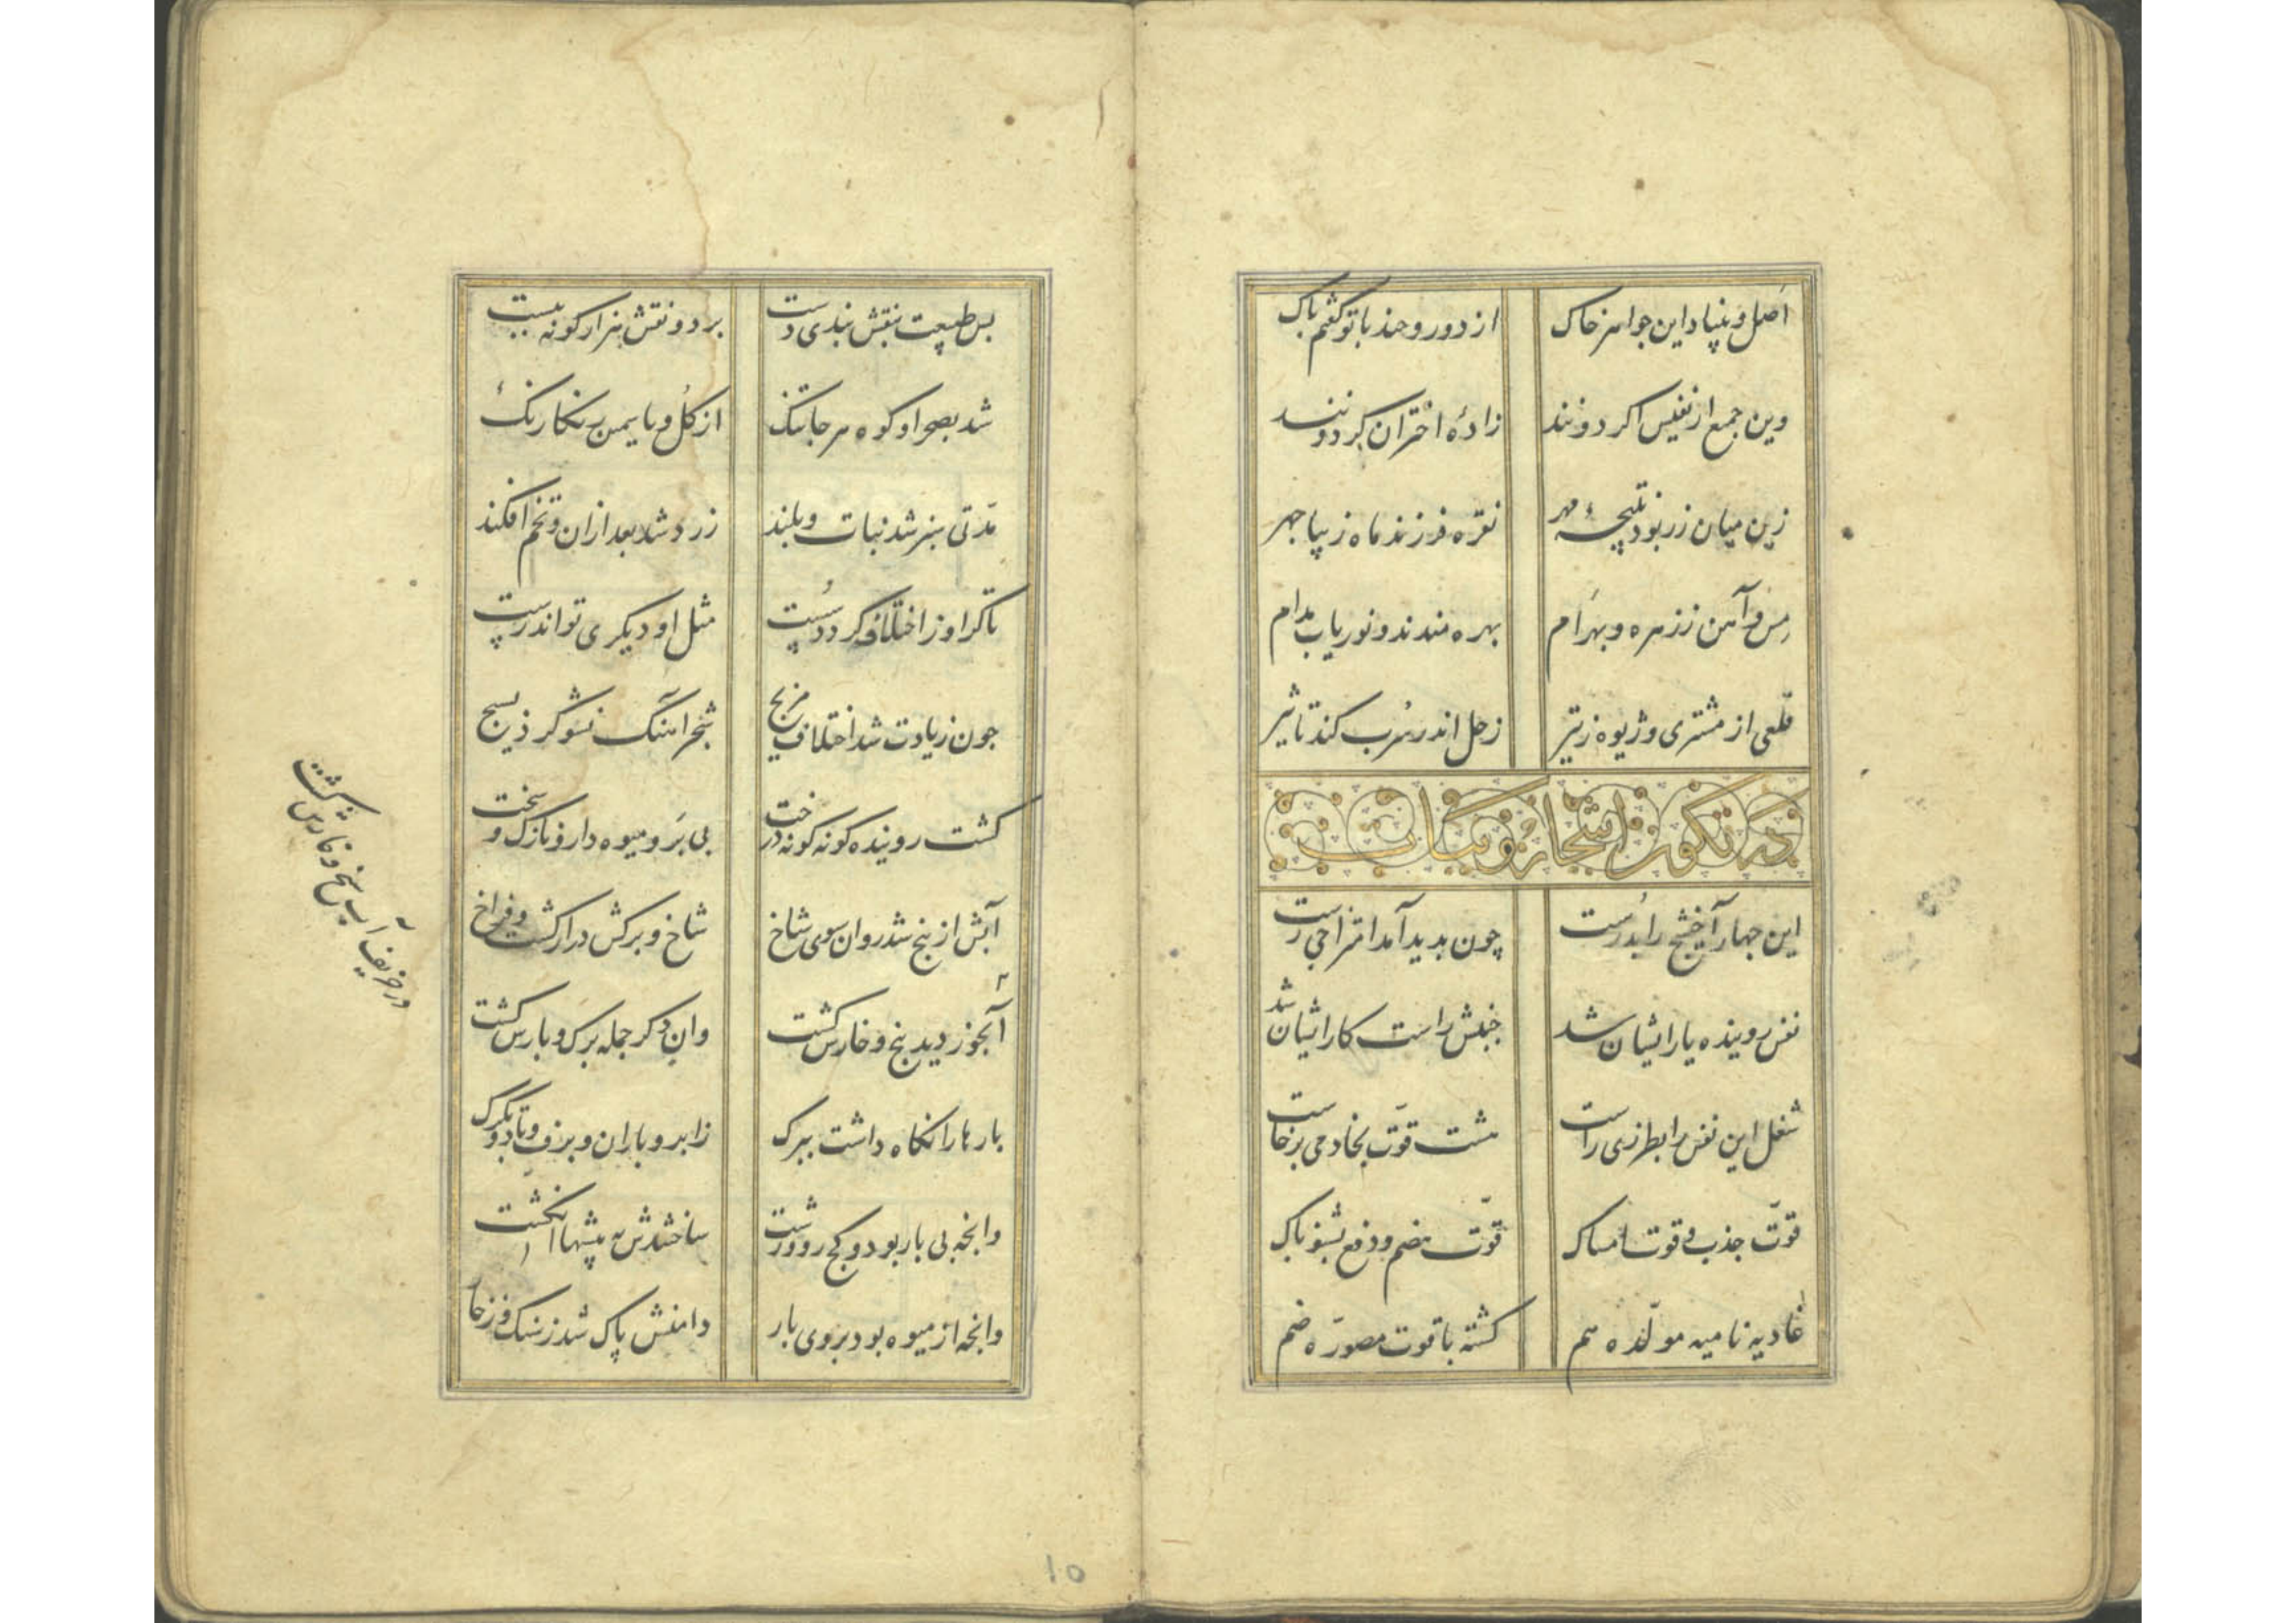 اصل و بنیاد این جواهر خاک
از دور و حد با تو گفتم پاک
وین جمع ار نفیس اکر دونند
زادهٔ اختران کردونند
زین میان زر بود نتیجهٔ مهر
نقره فرزند ماه زیبا چهر
مس و آهن ز زهره و بهرام
بهره مندند و نوریاب مدام
قلعی از مشتری و ژیوه ز تیر
زحل اندر سرب کند تاثیر
در تکون اشجار و نبات
این چهار آخشیج را بدرست
چون بدید آمد امتزاجی رست
نفس روینده یار ایشان شد
جنبش راست کار ایشان شد
شغل این نفس را بطرزی راست
هشت قوّت بخادمی برخاست
قوّت جذب و قوت امساک
قوّت هضم و دفع بشنو پاک
غاذیه نامیه مولّده هم
کشته با قوت مصوّره ضم
بس طبیعت بنقش بندی دست
برد و نقش هزار کونه ببست
شد بصحرا و کوه هر جا تنک
از کل و یاسمین رنکارنک
مدّتی سبز شد نبات و بلند
زرد شد بعد از ان و تخم افکند
تا کر او ز اختلاف کردد سست
مثل او دیکری تواند رست
چون زیادت شد اختلاف مزیج
شجر آهنک نشو کرد بسیج
کشت روینده کونه کونه درخت
بی بر و میوه دار و نازک و سخت
آبش از بیخ شد روان سوی شاخ
شاخ و برکش دراز کشت و فراخ
آبخور دید بیخ و خارش کشت
وان دکر جمله برک و بارش کشت
بارها را نکاه داشت ببرک
ز ابر و باران و برف و باد و تکرک
وانچه بی بار بود و کج رو و زشت
ساختندش به پیشها انکشت
وانچه از میوه بود بر وی بار
دامنش پاک شد ز سنک و ز خار
در خریف آب بیخ و نارش کشت
10